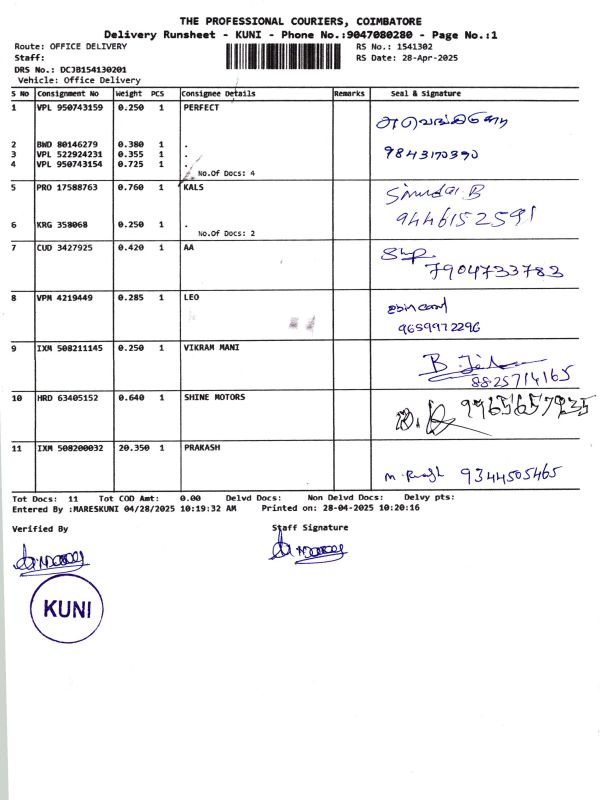 THE PROFESSIONAL COURIERS, COIMBATORE
Delivery Runsheet - KUNI - Phone No.:9047080280 - Page No.:1
Route: OFFICE DELIVERY RS No.: 1541302
Staff: RS Date: 28-Apr-2025
DRS No.: DCJB154130201
Vehicle: Office Delivery
S No Consignment No Weight PCS Consignee Details Remarks Seal & Signature
1 VPL 950743159 0.250 1 PERFECT
2 BWD 80146279 0.380 1 .
3 VPL 522924231 0.355 1 . 9843170390
4 VPL 950743154 0.725 1 .
No.Of Docs: 4
5 PRO 17588763 0.760 1 KALS
9446152591
6 KRG 358068 0.250 1 .
No.Of Docs: 2
7 CUD 3427925 0.420 1 AA
7904733783
8 VPM 4219449 0.285 1 LEO
9659972296
9 IXM 508211145 0.250 1 VIKRAM MANI
8825714165
10 HRD 63405152 0.640 1 SHINE MOTORS
11 IXM 508200032 20.350 1 PRAKASH
9344505465
Tot Docs: 11 Tot COD Amt: 0.00 Delvd Docs: Non Delvd Docs: Delvy pts:
Entered By :MARESKUNI 04/28/2025 10:19:32 AM Printed on: 28-04-2025 10:20:16
Verified By Staff Signature
KUNI